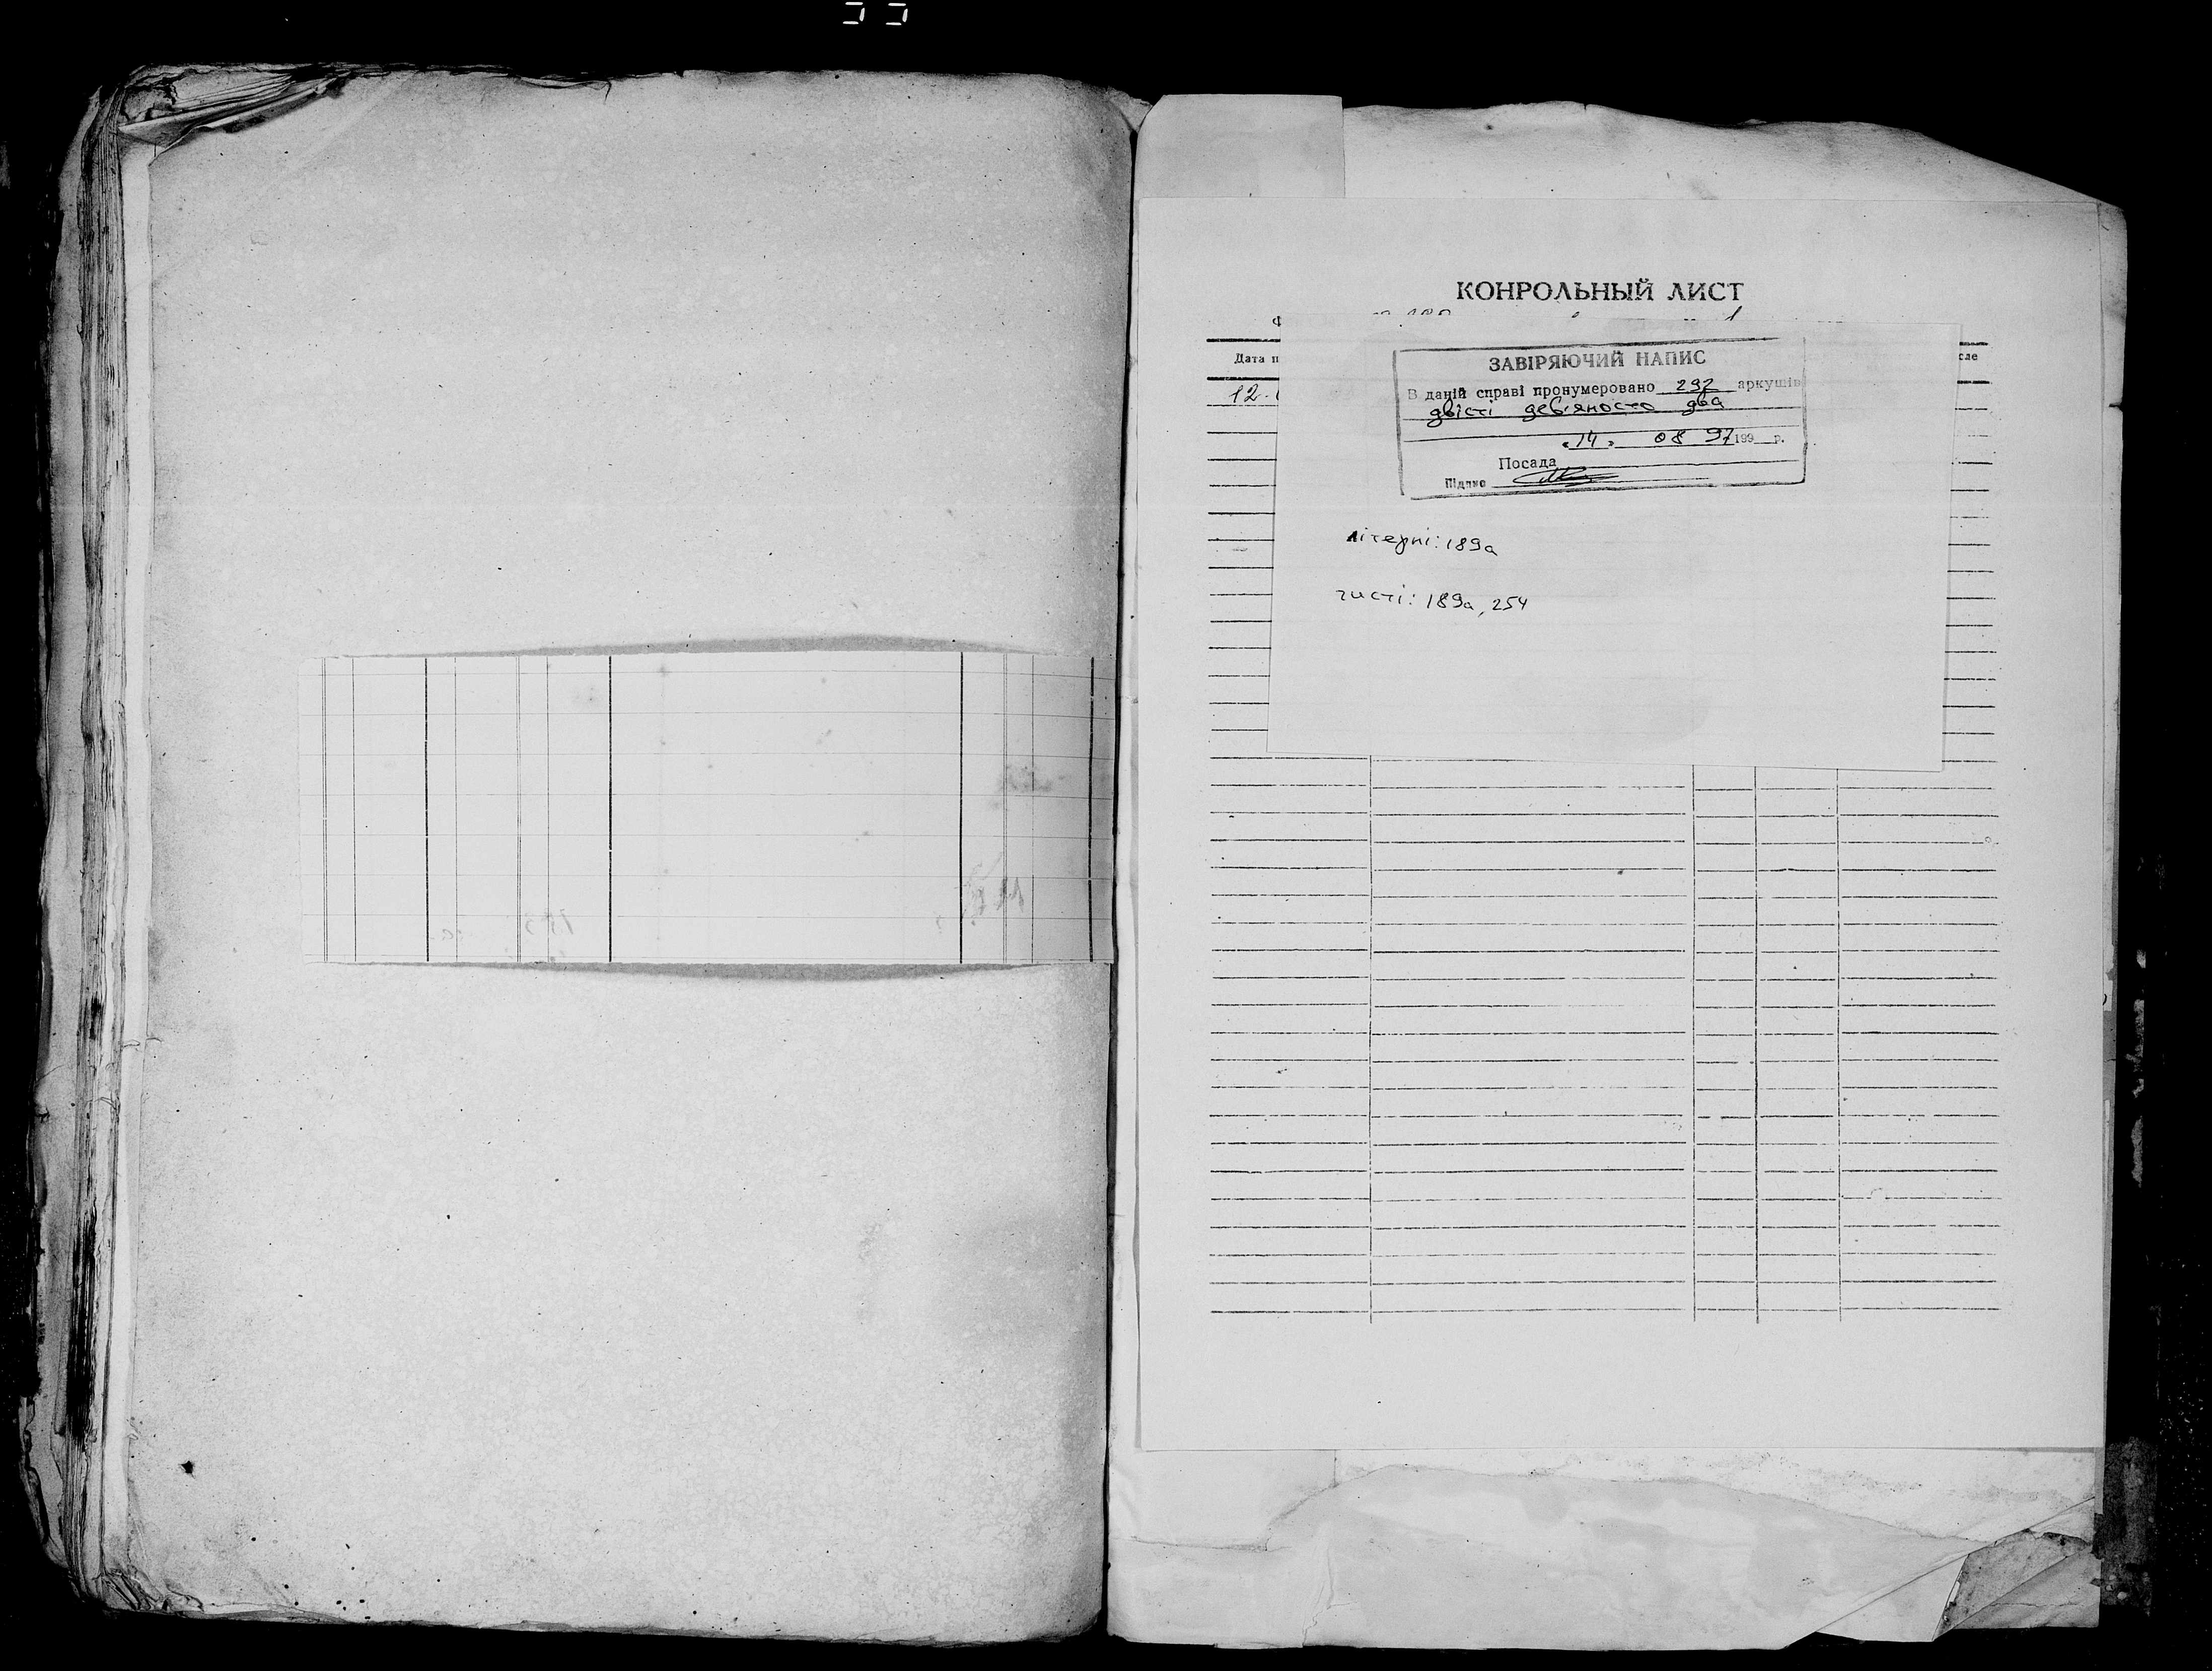 КОНРОЛЬНЫЙ ЛИСТ
Дата п
12.
ЗАВІРЯЮЧИЙ НАПИС
В даній справі пронумеровано 292 аркушів
двісті дев'яносто два
"14" 08 97 199 р.
Посада
Підпис
літерні: 189а
чисті: 189а, 254